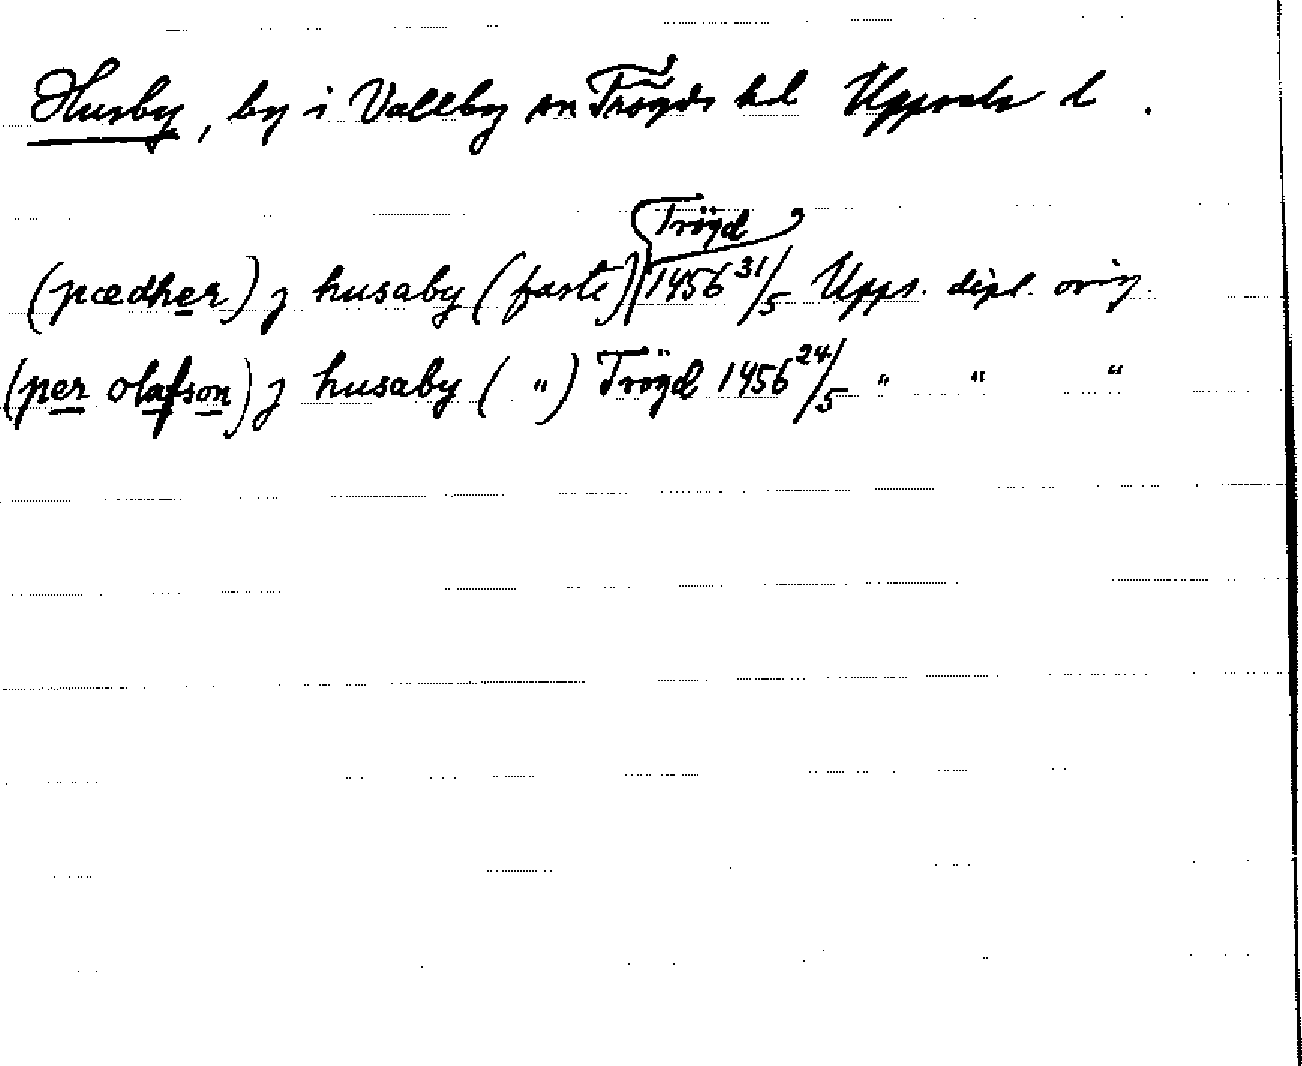 Husby, by i Vallby sn Trögds hd Uppsala l.
Trögd
(pædher) j husaby (faste) 1456 31/5 Upps. dipl. orig.
(per olafson) j husaby ( " ) Trögd 1456 24/5 " " "